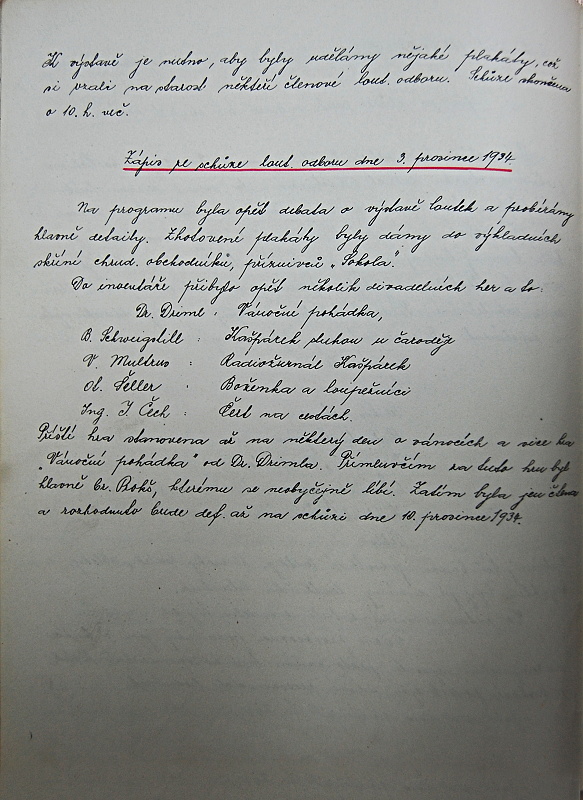 K výstavě je nutno, aby byly udělány nějaké plakáty, což
si vzali na starost někteří členové lout. odboru. Schůze skončena
o 10. h. več.
Zápis ze schůze lout. odboru dne 3. prosince 1934.
Na programu byla opět debata o výstavě loutek a probírány
hlavně detaily. Zhotovené plakáty byly dány do výkladních
skříní chrud. obchodníků, příznivců „Sokola".
Do inventáře přibylo opět několik divadelních her a to:
Dr. Driml : Vánoční pohádka,
B. Schweigstill : Kašpárek sluhou u čaroděje
V. Multrus : Radiožurnál Kašpárek
Ol. Šeller : Boženka a loupežníci
Ing. J. Čech : Čert na cestách.
Příští hra stanovena až na některý den o vánocích a sice hra
„Vánoční pohádka" od Dr. Drimla. Přímluvčím za tuto hru byl
hlavně br. Bokš, kterému se neobyčejně líbí. Zatím byla jen čtena
a rozhodnuto bude def. až na schůzi dne 10. prosince 1934.